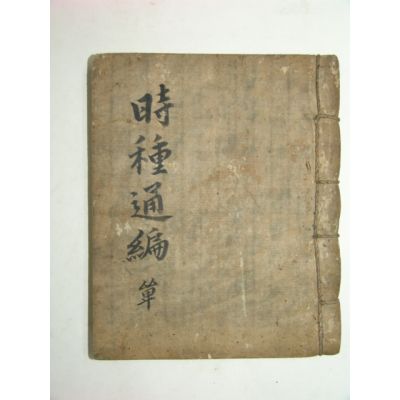 時種通編 單